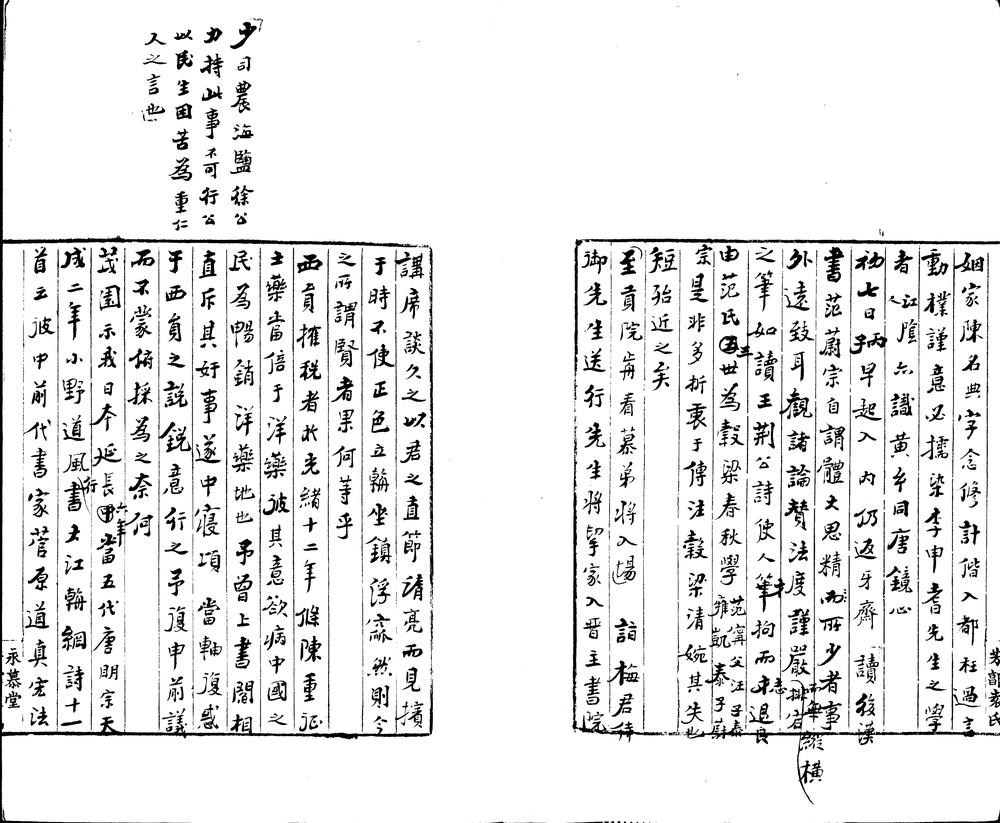 姻家陳名典字念修計偕入都枉過言
動樸謹意必擩染李申耆先生之學
者江陰人六識黃乡同唐鏡心
初七日丙子早起入內仍返牙齋讀後漢
書范蔚宗自謂體大思精而所少者事
外遠致耳觀諸論贊法度謹嚴縱橫
之筆如讀王荊公詩使人筆拘而退良
由范氏三世為穀梁春秋學范甯父汪子泰雍凱泰子蔚
宗是非多折衷于傳注穀梁清婉其失也
短殆近之矣
至貢院再看慕弟將入場詣梅君侍
御先生送行先生將挈家入晉主書院
講席談久之以君之直節清亮而見擯
于時不使正色立朝坐鎮浮靡然則今
之所謂賢者果何等乎
西員擁稅者於光緒十二年條陳重征
土藥當倍于洋藥彼其意欲病中國之
民為暢銷洋藥地也予曾上書閻相
直斥其奸事遂中寢項當軸復惑
于西員之說銳意行之予復申前議
而不蒙俯採為之奈何
茂園示我日本延長六年當五代唐明宗天
成二年小野道風行書大江朝綱詩十一
首云彼中前代書家菅原道真宏法
少司農海鹽徐公
力持此事不可行公
以民生困苦為重仁
人之言也
永慕堂